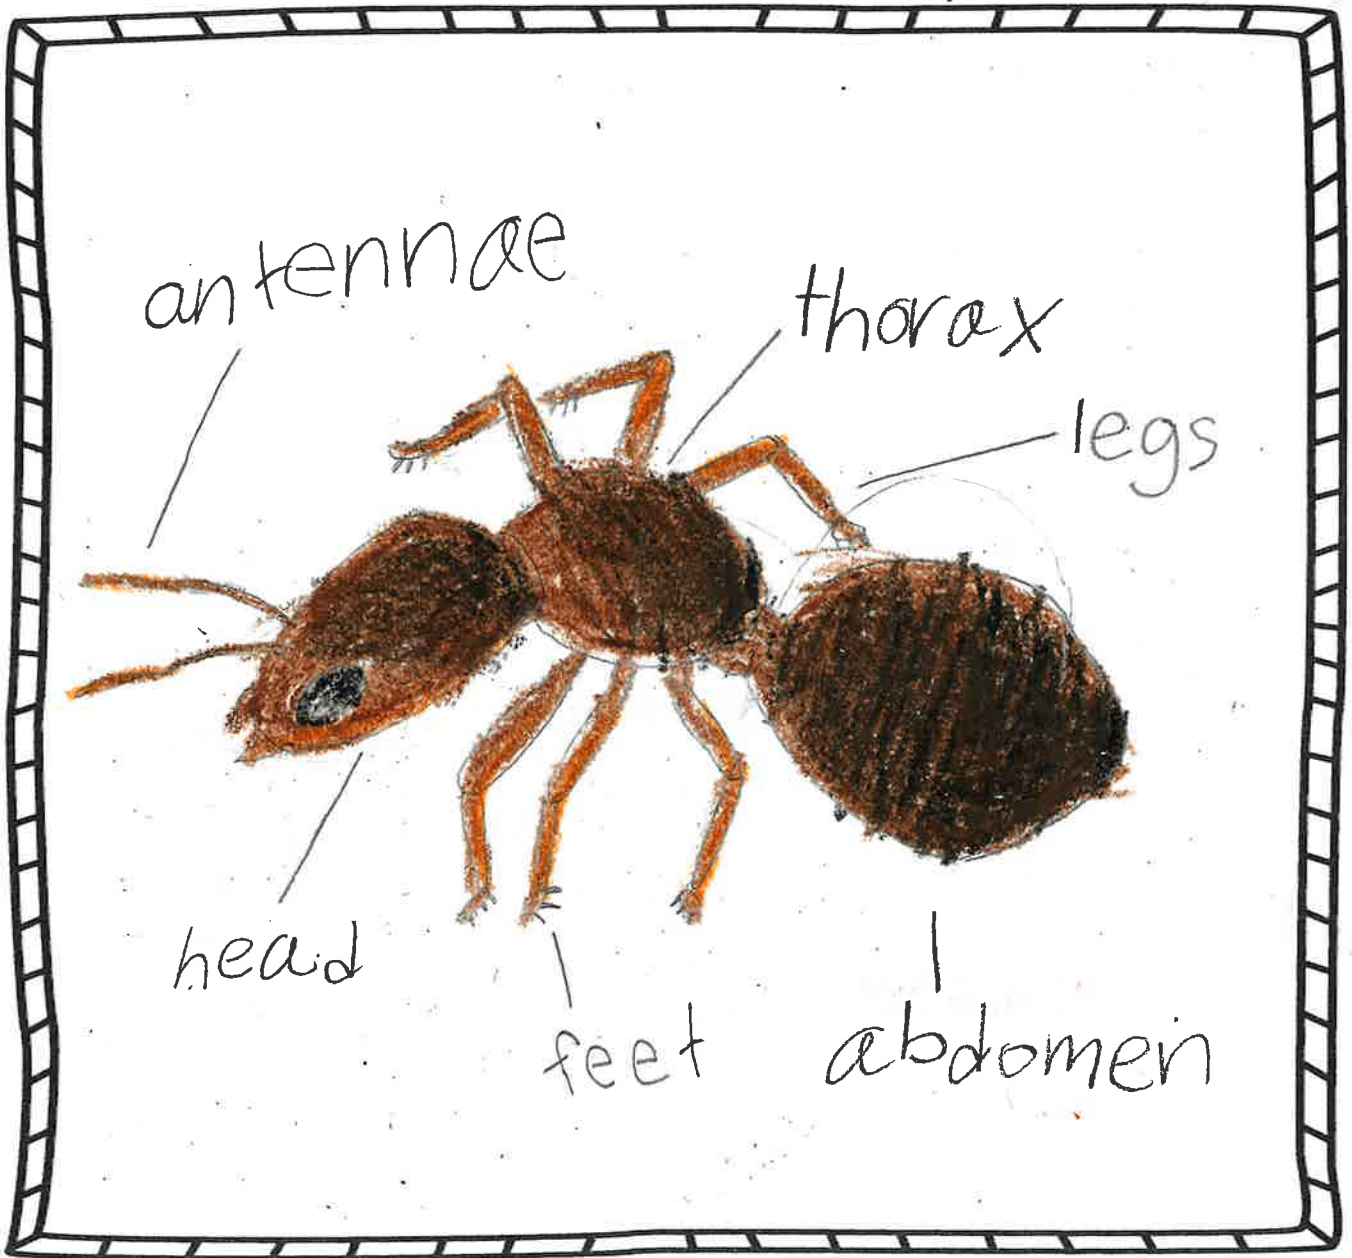 antennae
thorax
legs
head
feet
abdomen